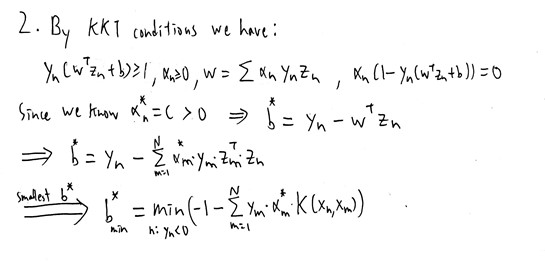 2. By KKT conditions we have:
yₙ(wᵀzₙ+b)≥1, αₙ≥0, w = Σ αₙ yₙ zₙ , αₙ(1-yₙ(wᵀzₙ+b))=0
Since we know αₙ* = C > 0 ⇒ b* = yₙ - wᵀzₙ
⇒ b* = yₙ - Σ_{m=1}^{N} αₘ*·yₘ·zₘᵀ·zₙ
smallest b* ⇒ b*_{min} = min_{n: yₙ<0} (-1 - Σ_{m=1}^{N} yₘ·αₘ*·K(xₙ,xₘ))